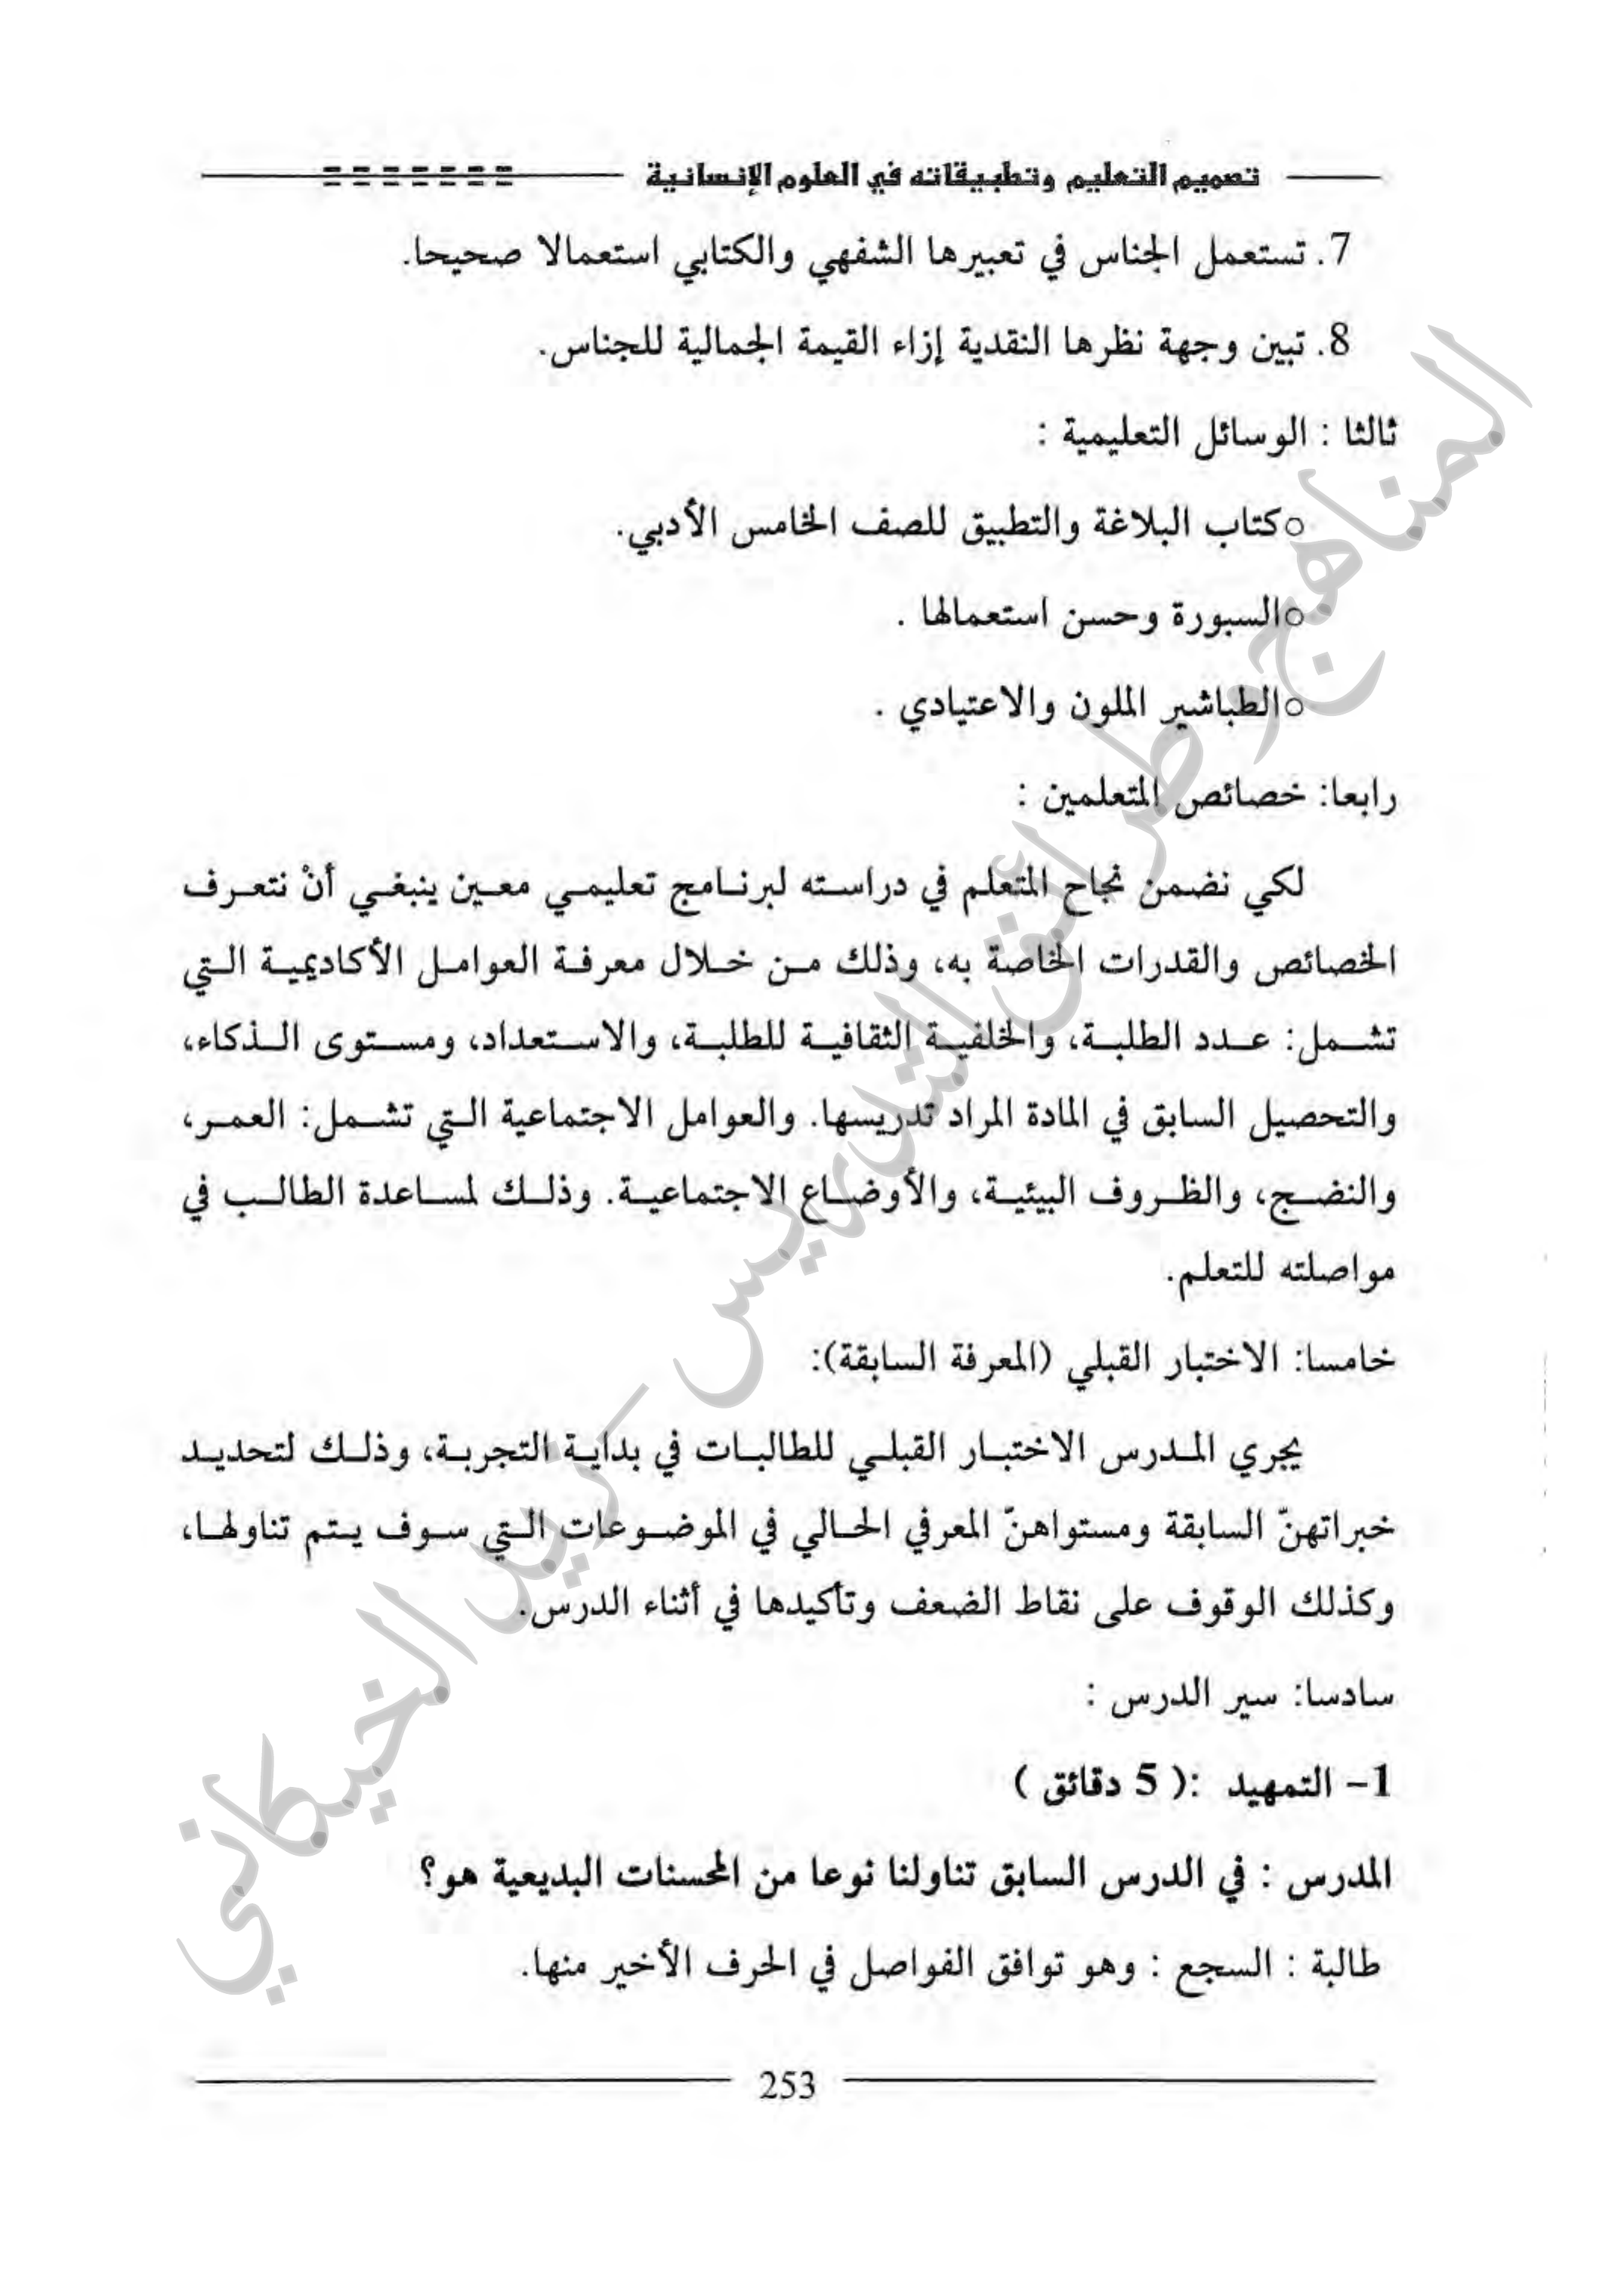 تصميم التعليم وتطبيقاته في العلوم الإنسانية
7. تستعمل الجناس في تعبيرها الشفهي والكتابي استعمالا صحيحا.
8. تبين وجهة نظرها النقدية إزاء القيمة الجمالية للجناس.
ثالثا : الوسائل التعليمية :
○كتاب البلاغة والتطبيق للصف الخامس الأدبي.
○السبورة وحسن استعمالها .
○الطباشير الملون والاعتيادي .
رابعا: خصائص المتعلمين :
لكي نضمن نجاح المتعلم في دراسته لبرنامج تعليمي معين ينبغي أنْ نتعرف
الخصائص والقدرات الخاصة به، وذلك من خلال معرفة العوامل الأكاديمية التي
تشمل: عدد الطلبة، والخلفية الثقافية للطلبة، والاستعداد، ومستوى الذكاء،
والتحصيل السابق في المادة المراد تدريسها. والعوامل الاجتماعية التي تشمل: العمر،
والنضج، والظروف البيئية، والأوضاع الاجتماعية. وذلك لمساعدة الطالب في
مواصلته للتعلم.
خامسا: الاختبار القبلي (المعرفة السابقة):
يجري المدرس الاختبار القبلي للطالبات في بداية التجربة، وذلك لتحديد
خبراتهنّ السابقة ومستواهنّ المعرفي الحالي في الموضوعات التي سوف يتم تناولها،
وكذلك الوقوف على نقاط الضعف وتأكيدها في أثناء الدرس.
سادسا: سير الدرس :
1- التمهيد :( 5 دقائق )
المدرس : في الدرس السابق تناولنا نوعا من المحسنات البديعية هو؟
طالبة : السجع : وهو توافق الفواصل في الحرف الأخير منها.
253
المناهج وطرائق التدريس كريد الخيكاني